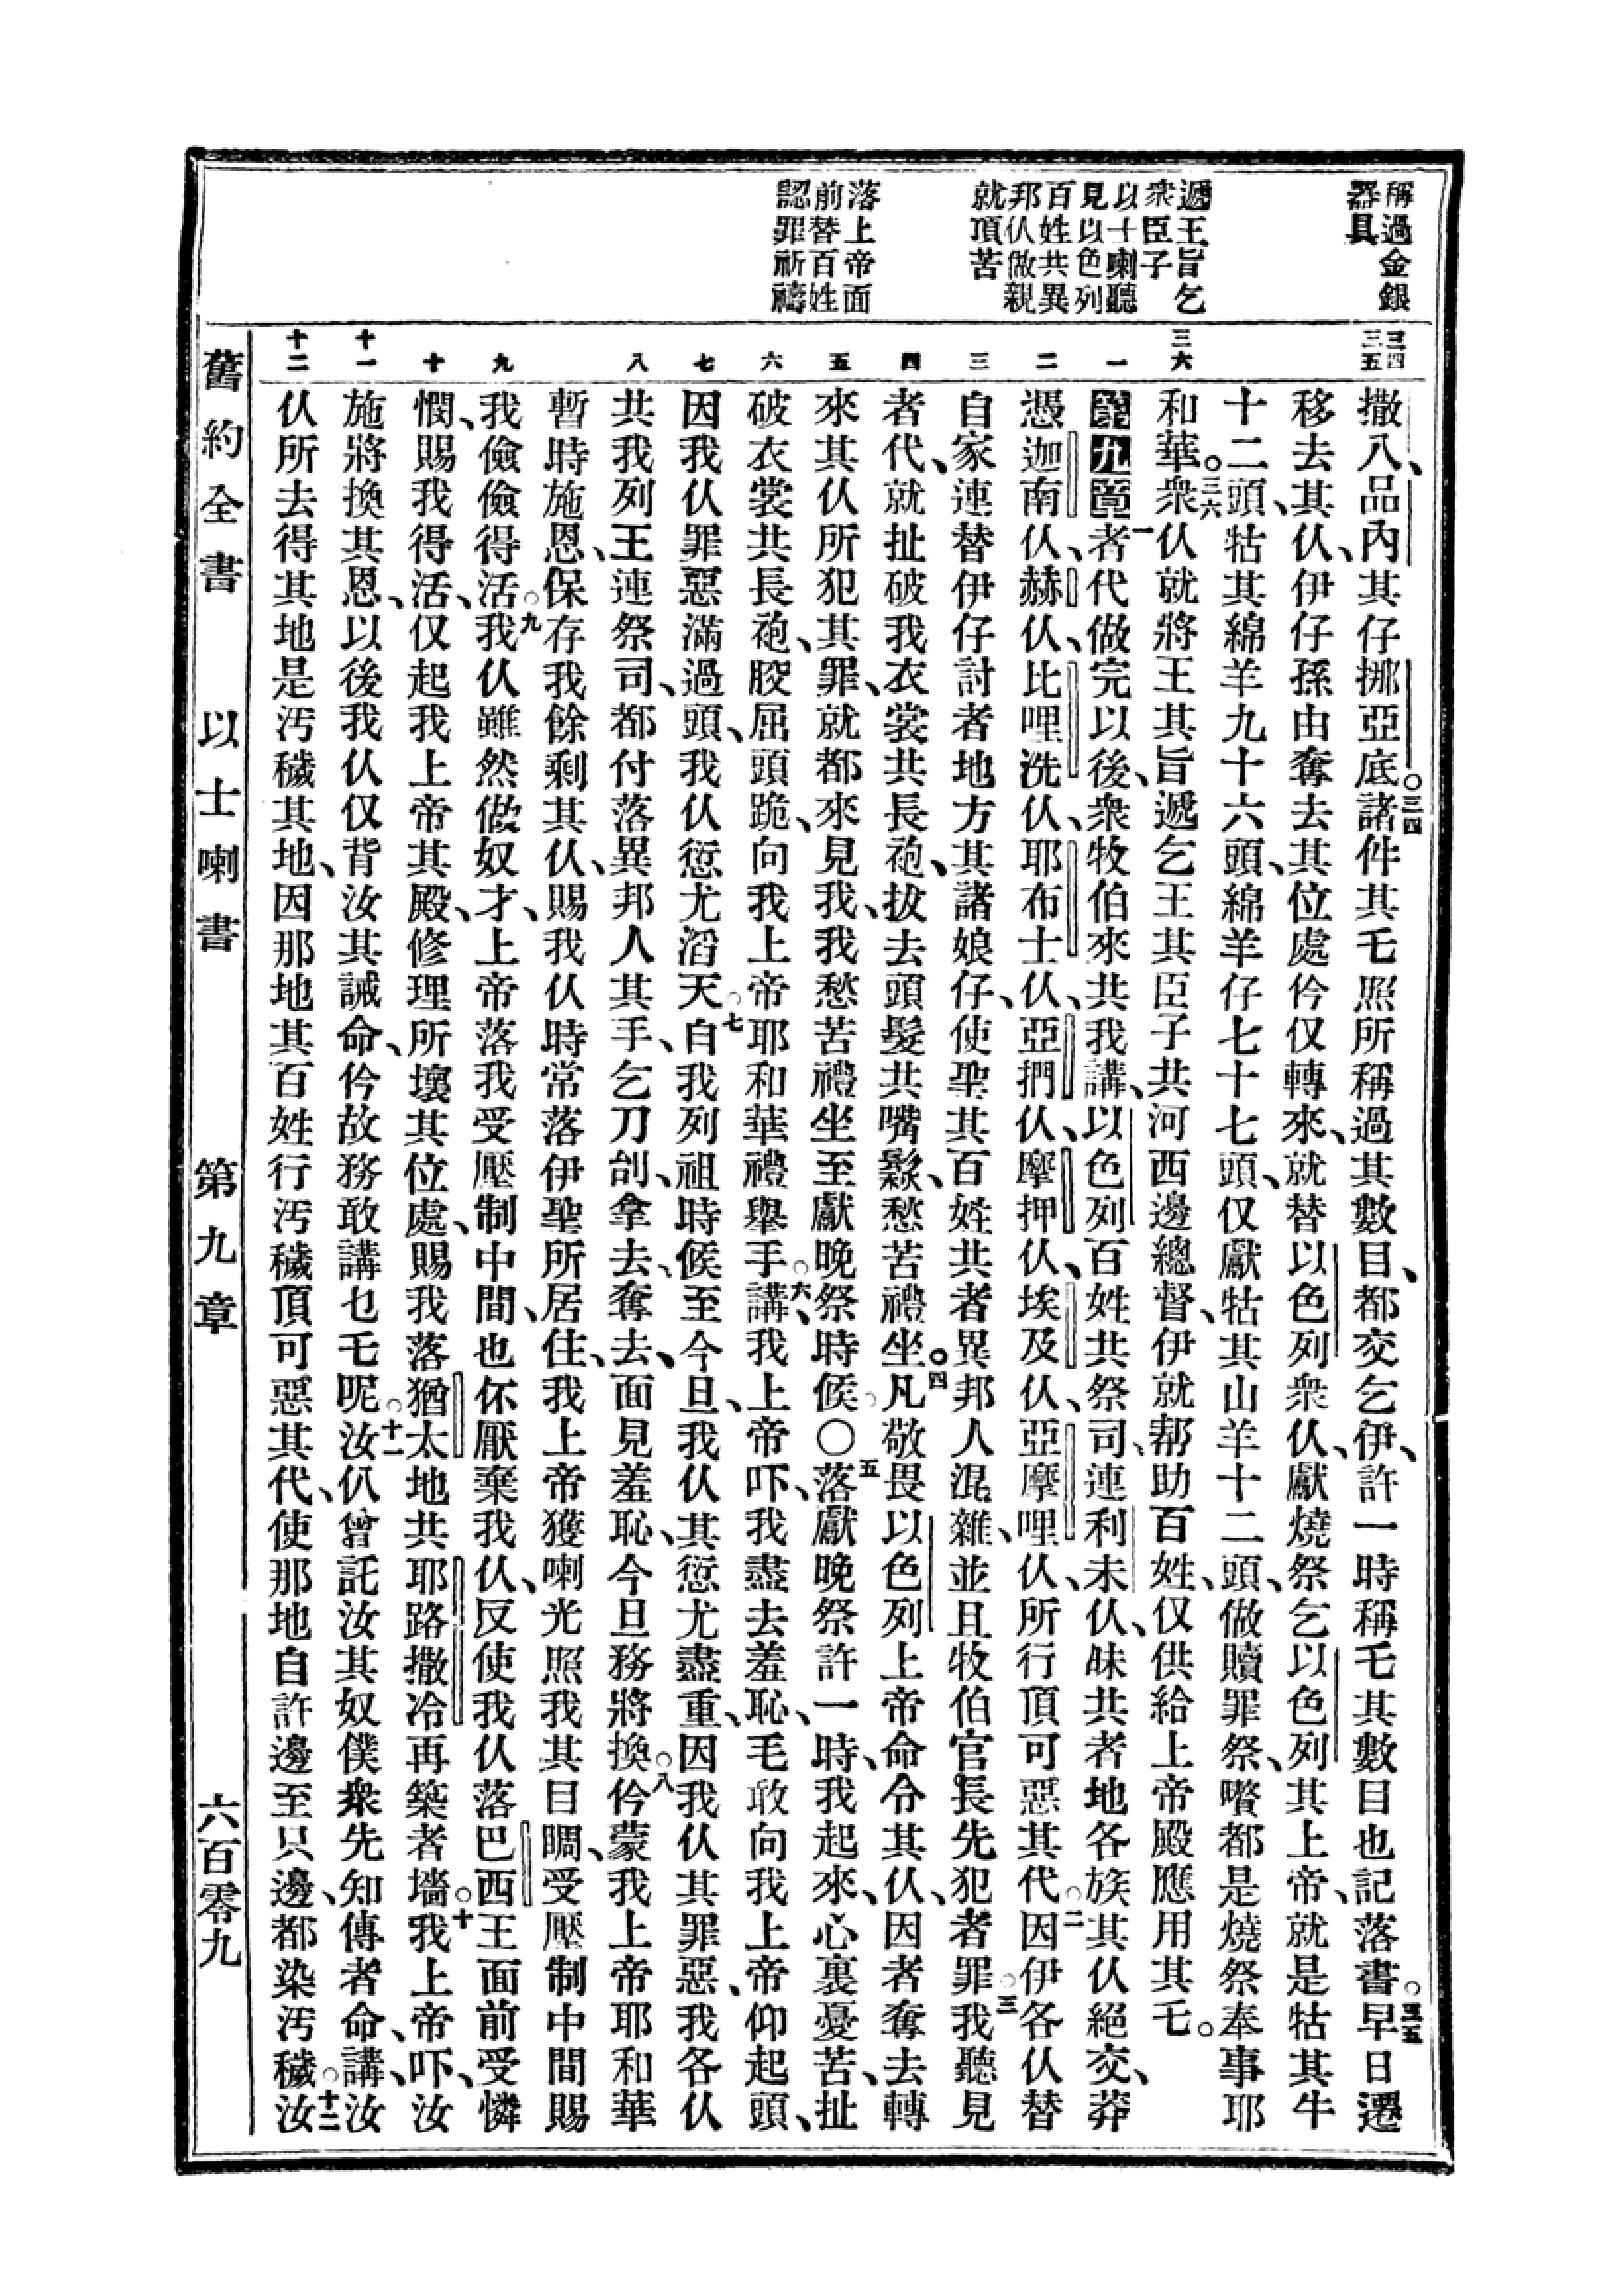 稱過金銀
器具
遞王旨乞
衆臣子
以士喇聽
見以色列
百姓共異
邦仈做親
就項苦
落上帝面
前替百姓
認罪祈禱
三四
三五
三六
一
二
三
四
五
六
七
八
九
十
十一
十二
撒八、品內其仔挪亞底。三四諸件其乇照所稱過其數目、都交乞伊、許一時稱乇其數目也記落書。三五早日遷
移去其仈、伊仔孫由奪去其位處仱仅轉來、就替以色列衆仈、獻燒祭乞以色列其上帝、就是牯其牛
十二頭、牯其綿羊九十六頭、綿羊仔七十七頭、仅獻牯其山羊十二頭、做贖罪祭、嚽都是燒祭奉事耶
和華。三六衆仈就將王其旨遞乞王其臣子共河西邊總督、伊就帮助百姓、仅供給上帝殿應用其乇。
第九章 一者代做完以後、衆牧伯來共我講、以色列百姓共祭司、連利未仈、昧共者地各族其仈絕交、莽
憑迦南仈、赫仈、比哩洗仈、耶布士仈、亞捫仈、摩押仈、埃及仈、亞摩哩仈、所行頂可惡其代。二因伊各仈替
自家連替伊仔討者地方其諸娘仔、使聖其百姓共者異邦人混雜、並且牧伯官長先犯者罪。三我聽見
者代、就扯破我衣裳共長袍、拔去頭髮共嘴鬏、愁苦禮坐。四凡敬畏以色列上帝命令其仈、因者奪去轉
來其仈所犯其罪、就都來見我、我愁苦禮坐至獻晚祭時候。〇五落獻晚祭許一時、我起來、心裏憂苦、扯
破衣裳共長袍、骹屈頭跪、向我上帝耶和華禮舉手。六講、我上帝吓、我盡去羞恥、乇敢向我上帝仰起頭、
因我仈罪惡滿過頭、我仈愆尤滔天。七自我列祖時候至今旦、我仈其愆尤盡重、因我仈其罪惡、我各仈
共我列王連祭司、都付落異邦人其手、乞刀刣、拿去、奪去、面見羞恥、今旦務將換。八仱蒙我上帝耶和華
暫時施恩、保存我餘剩其仈、賜我仈時常落伊聖所居住、我上帝獲喇光照我其目睭、受壓制中間賜
我儉儉得活。九我仈雖然做奴才、上帝落我受壓制中間、也伓厭棄我仈、反使我仈落巴西王面前受憐
憫、賜我得活、仅起我上帝其殿、修理所壞其位處、賜我落猶太地共耶路撒冷再築者墻。十我上帝吓、汝
施將換其恩、以後我仈仅背汝其誡命、仱故務敢講乜乇呢。十一汝仈曾託汝其奴僕衆先知傳者命、講、汝
仈所去得其地是汚穢其地、因那地其百姓行汚穢頂可惡其代、使那地自許邊至只邊、都染汚穢。十二汝
舊約全書 以士喇書 第九章 六百零九